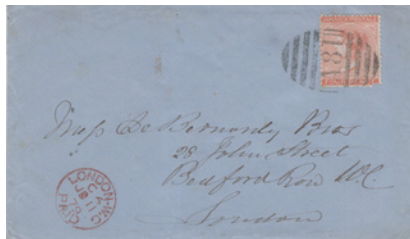 Mess De Bernardy Bros
28 John Street
Bedford Row W.C.
London
LONDON-W.C
PAID